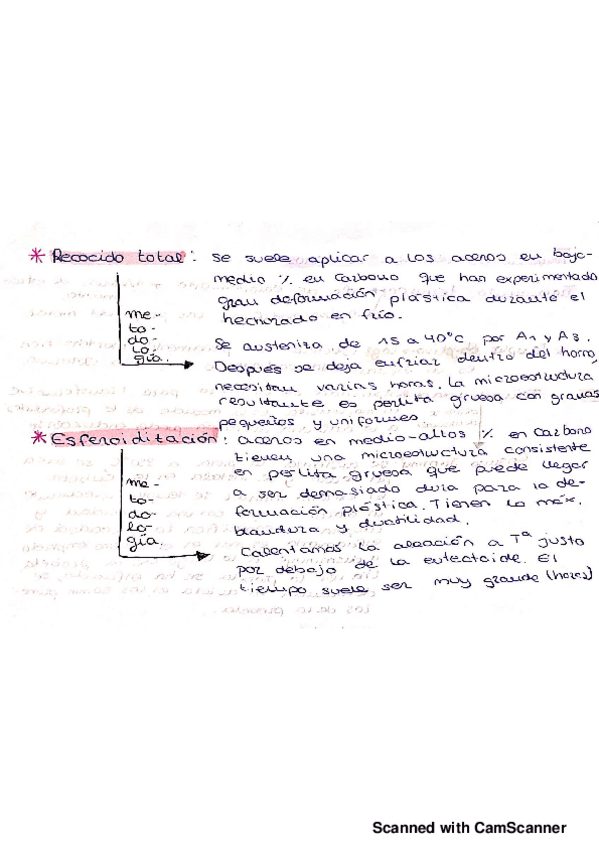 * Recocido total: se suele aplicar a los aceros en bajo-
medio % en Carbono que han experimentado
gran deformación plástica durante el
hechurado en frío.
me-
to-
do-
lo-
gía.
Se austeniza de 15 a 40°C por A1 y A3.
Después se deja enfriar dentro del horno,
necesitan varias horas. La microestructura
resultante es perlita gruesa con granos
pequeños y uniformes
* Esferoiditación: aceros en medio-altos % en Carbono
tienen una microestructura consistente
en perlita gruesa que puede llegar
a ser demasiado dura para la de-
formación plástica. Tienen la máx.
blandura y ductilidad.
me-
to-
do-
lo-
gía.
Calentamos la aleación a Tª justo
por debajo de la eutectoide. El
tiempo suele ser muy grande (horas)
Scanned with CamScanner